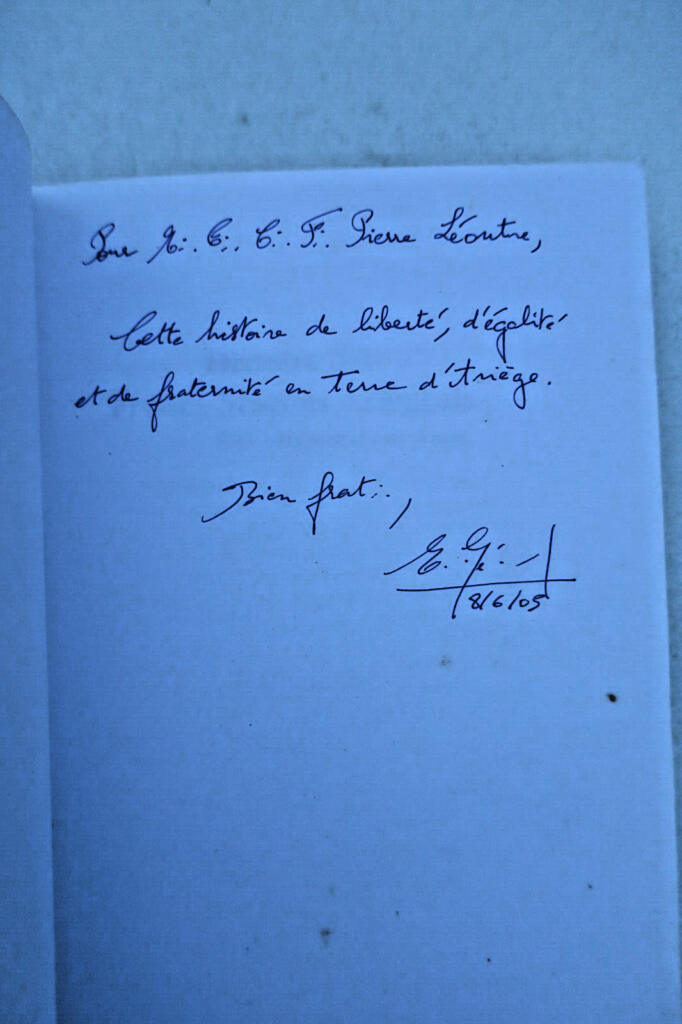 Pour M∴ T∴ C∴ F∴ Pierre Léoutre,
Cette histoire de liberté, d'égalité
et de fraternité en terre d'Ariège.
Bien frat∴,
8/6/05